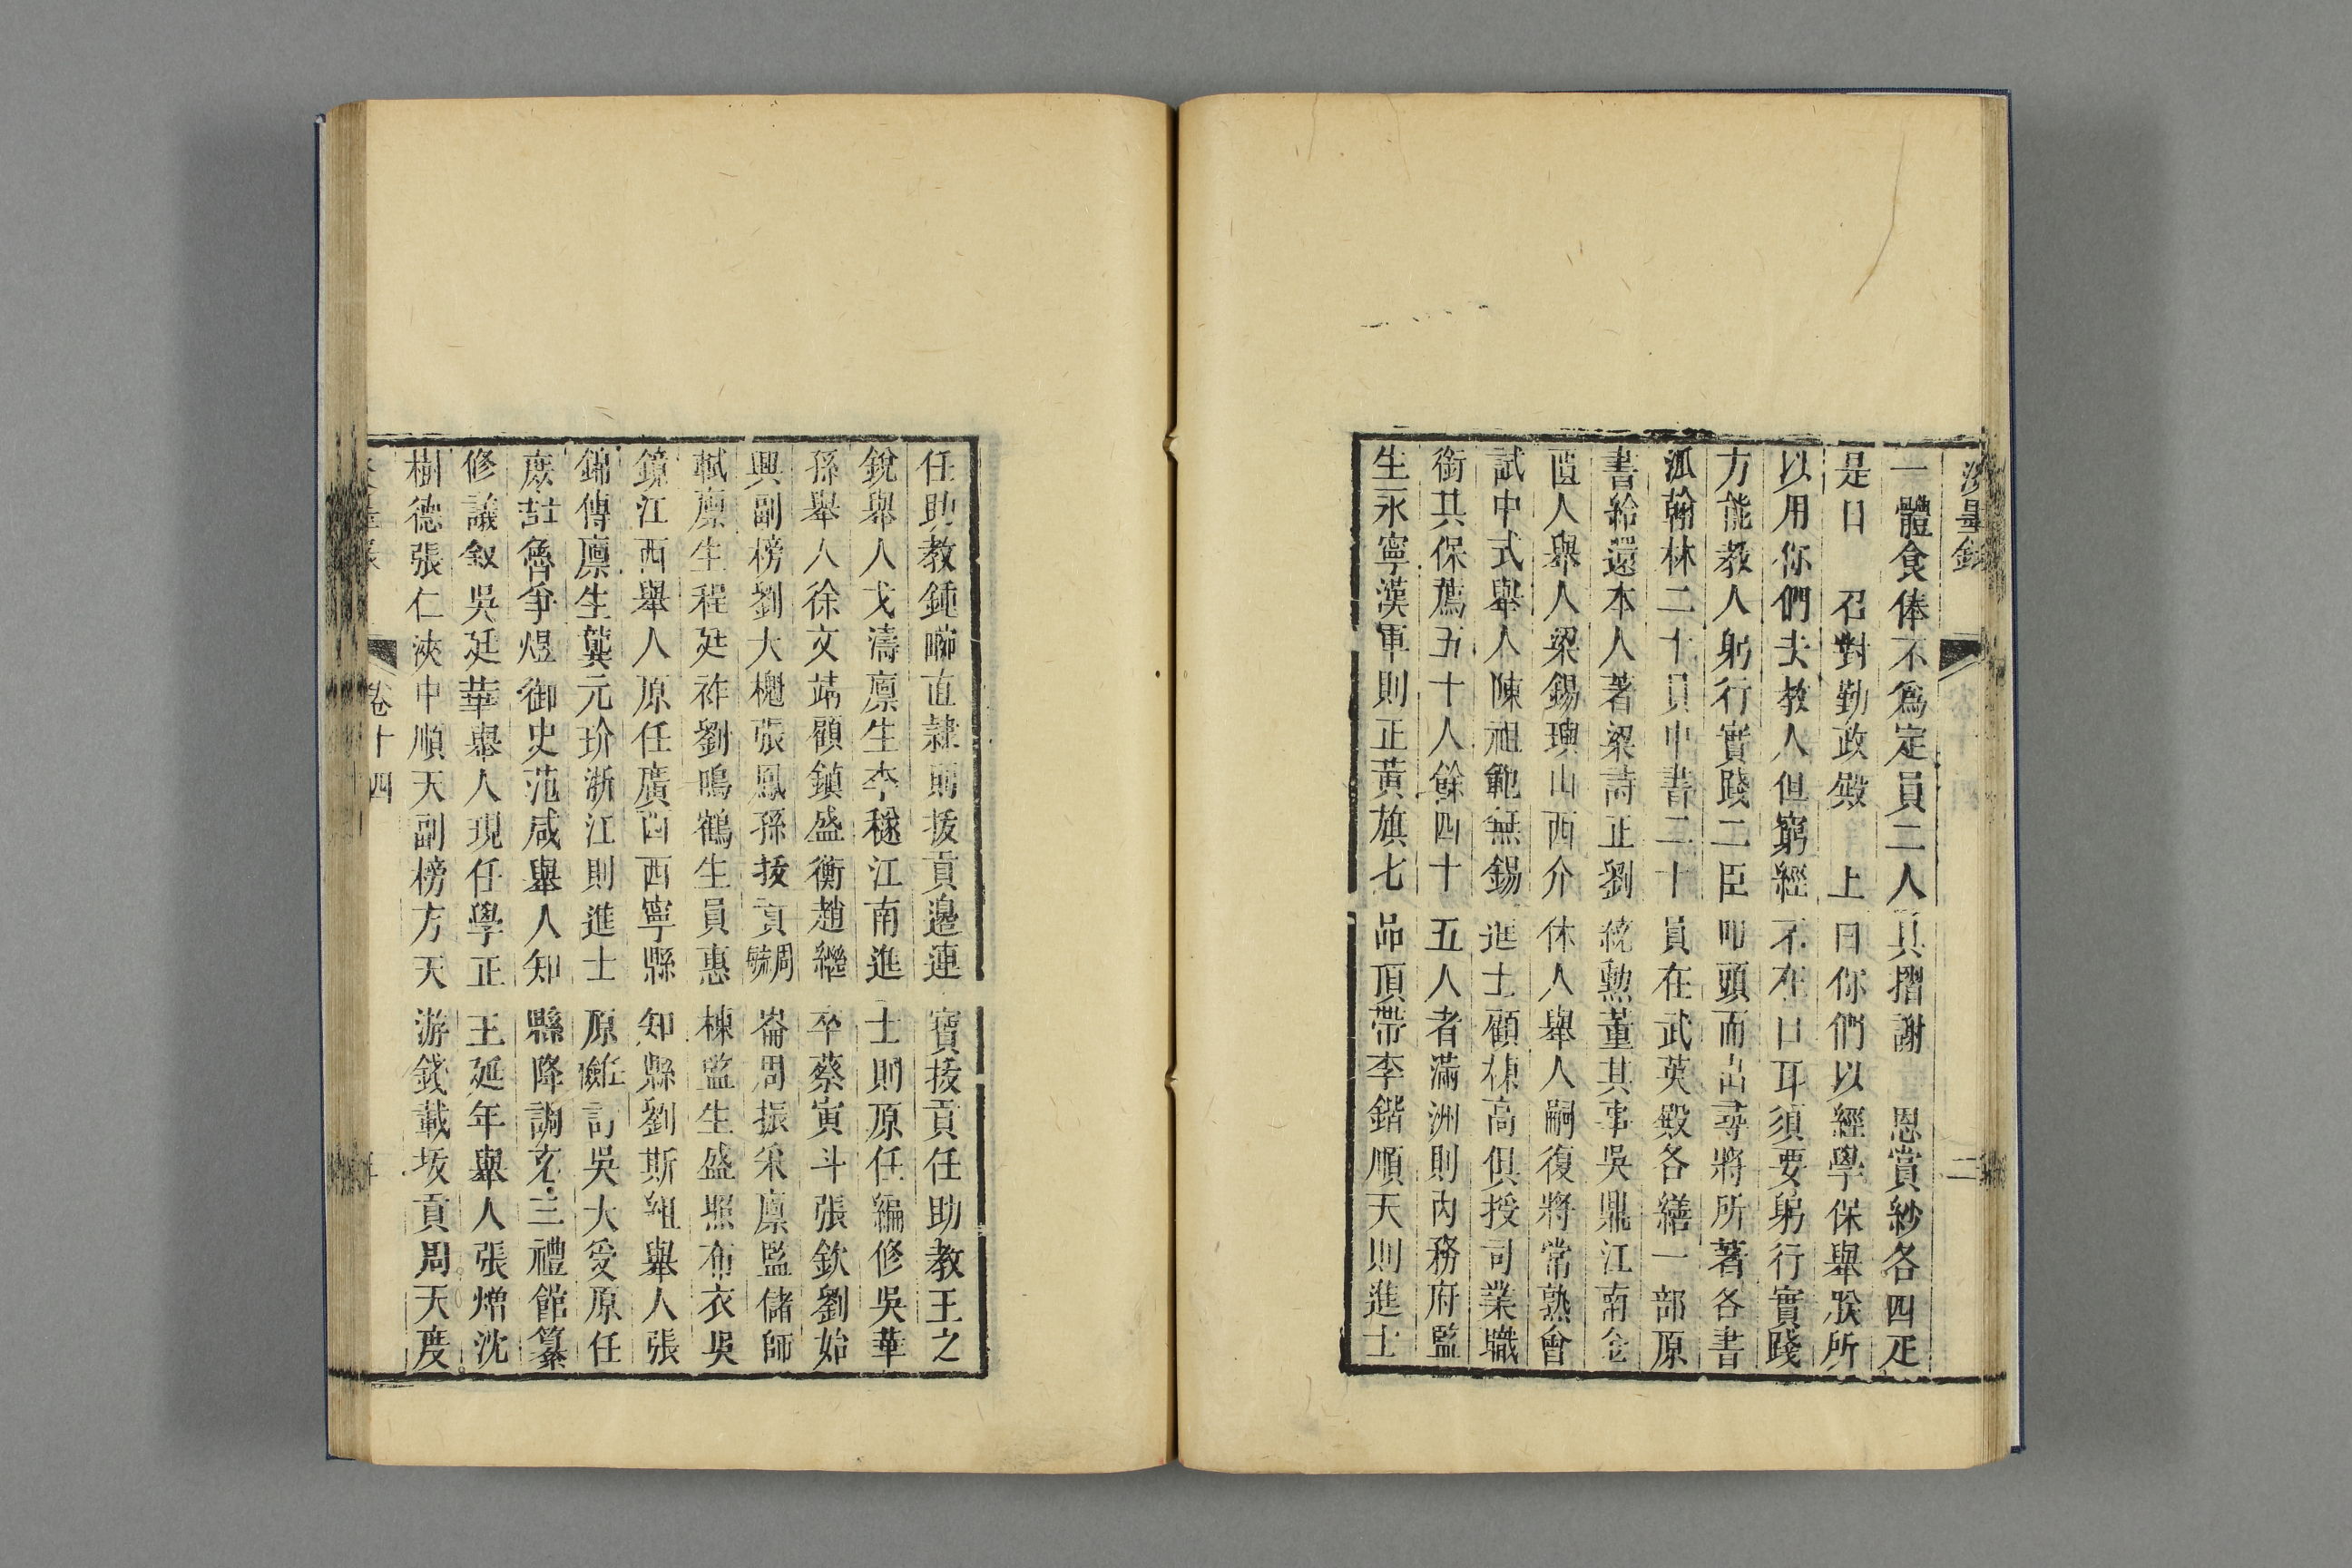 一體食俸不為定員二人具摺謝　恩賞紗各四疋
是日　召對勤政殿　上曰你們以經學保舉朕所
以用你們去教人但窮經不在口耳須要躬行實踐
方能教人躬行實踐二臣叩頭而出尋將所著各書
派翰林二十員中書二十員在武英殿各繕一部原
書給還本人著梁詩正劉統勲董其事吳鼎江南金
匱人舉人梁錫璵山西介休人舉人嗣復將常熟會
試中式舉人陳祖範無錫進士顧棟高俱授司業職
銜共保薦五十人餘四十五人者滿洲則內務府監
生永寧漢軍則正黃旗七品頂帶李鍇順天則進士
二
任助教鍾晼直隸則拔貢邊連寶拔貢任助教王之
銳舉人戈濤廪生李穟江南進士則原任編修吳華
孫舉人徐文靖顧鎮盛衡趙繼卒蔡寅斗張欽劉始
興副榜劉大櫆張鳳孫拔貢周毓崙周振采廪監儲師
軾廪生程廷祚劉鳴鶴生員惠棟監生盛照布衣吳
鏡江西舉人原任廣西西寧縣知縣劉斯組舉人張
錦傳廪生龔元玠浙江則進士原任檢討吳大受原任
庶吉士齊爭煜御史范咸舉人知縣降調充三禮館纂
修議叙吳廷華舉人現任學正王延年舉人張熷沈
樹德張仁浹中順天副榜方天游錢載拔貢周天度
卷十四